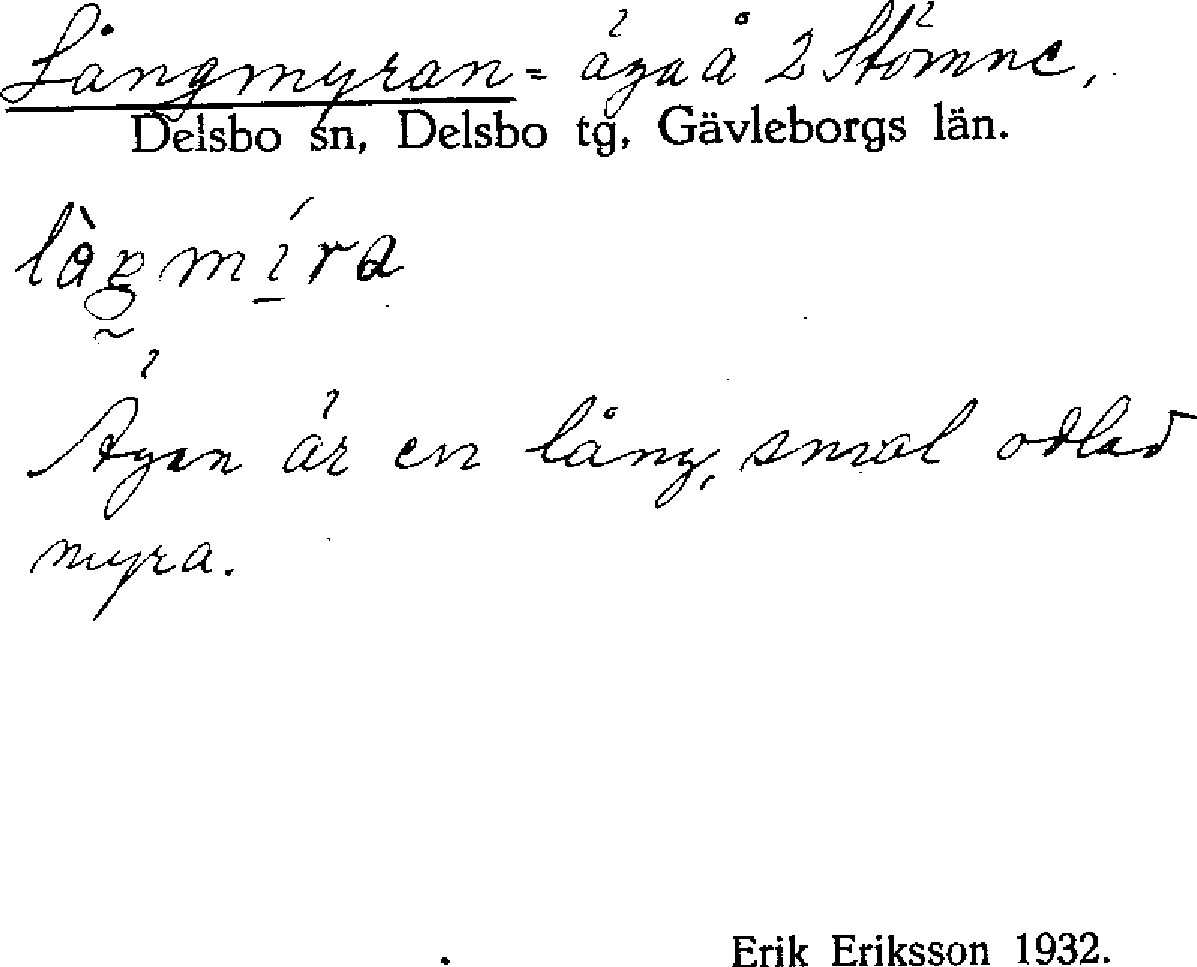 Långmyran = äga å 2 Stömne,
Delsbo sn, Delsbo tg, Gävleborgs län.
Ägan är en lång, smal odlad
myra.
Erik Eriksson 1932.